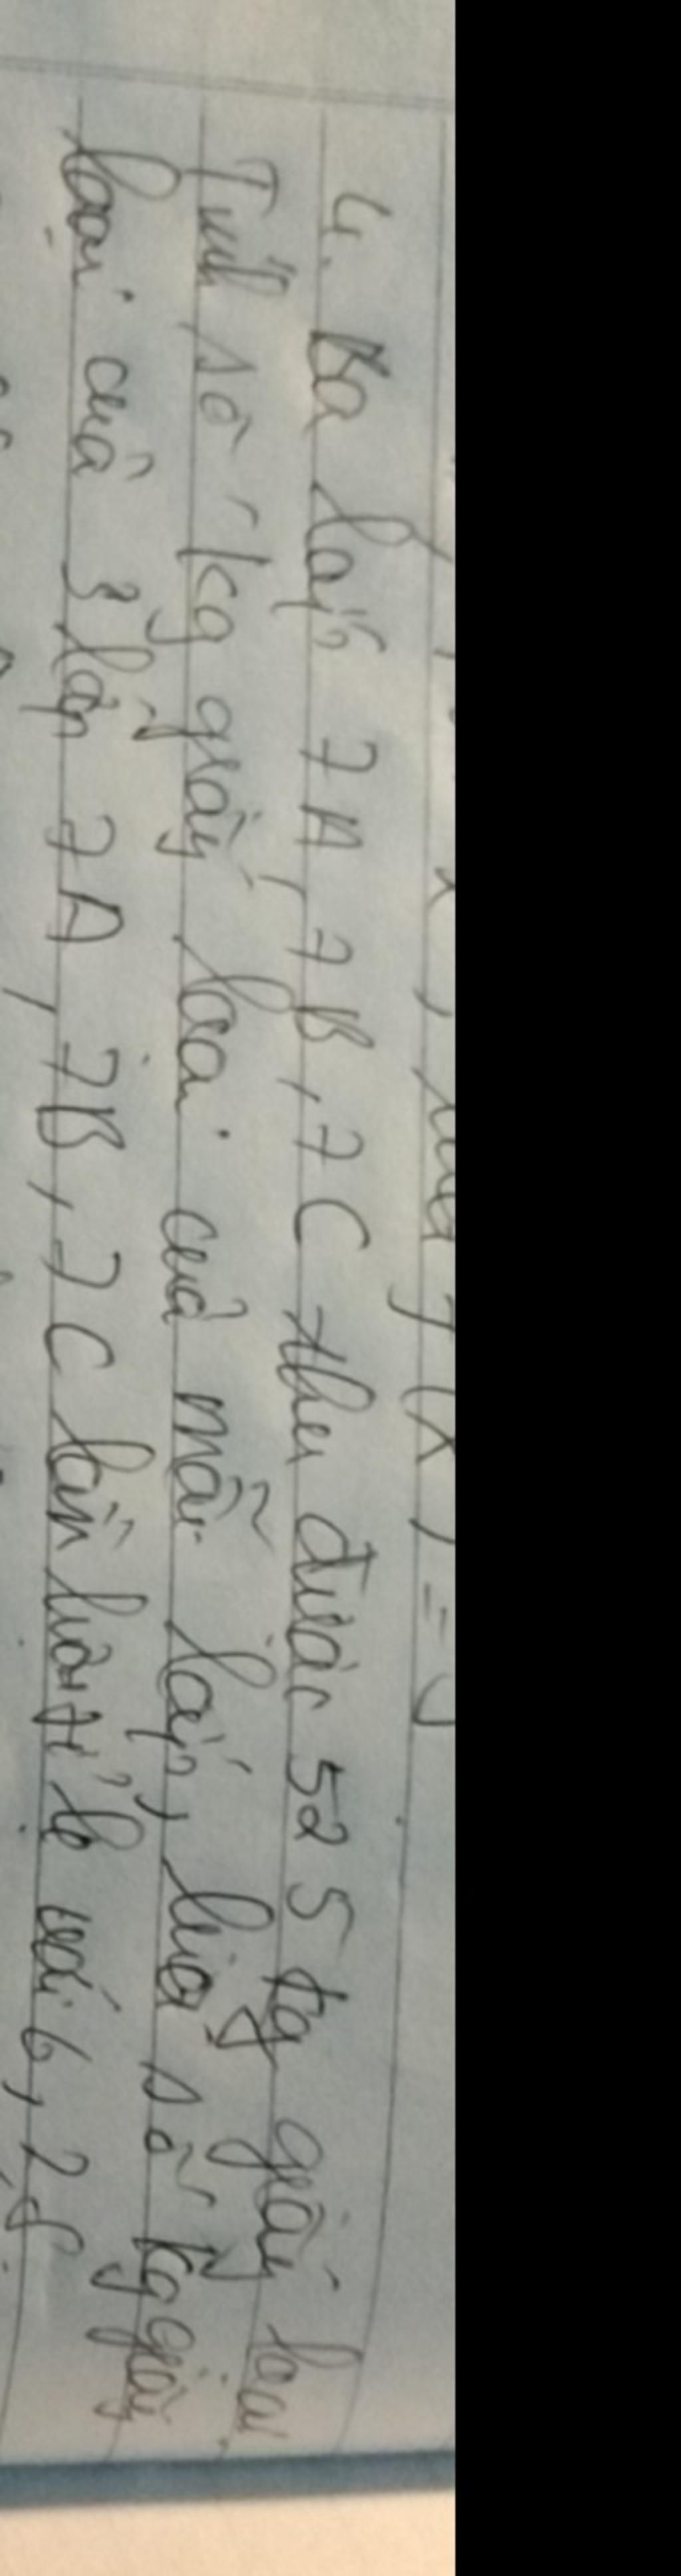 4. Ba lớp 7A, 7B, 7C thu được 525 kg giấy loại.
Tính số kg giấy loại của mỗi lớp, biết số kg giấy
loại của 3 lớp 7A, 7B, 7C lần lượt tỉ lệ với 6, 7, 8